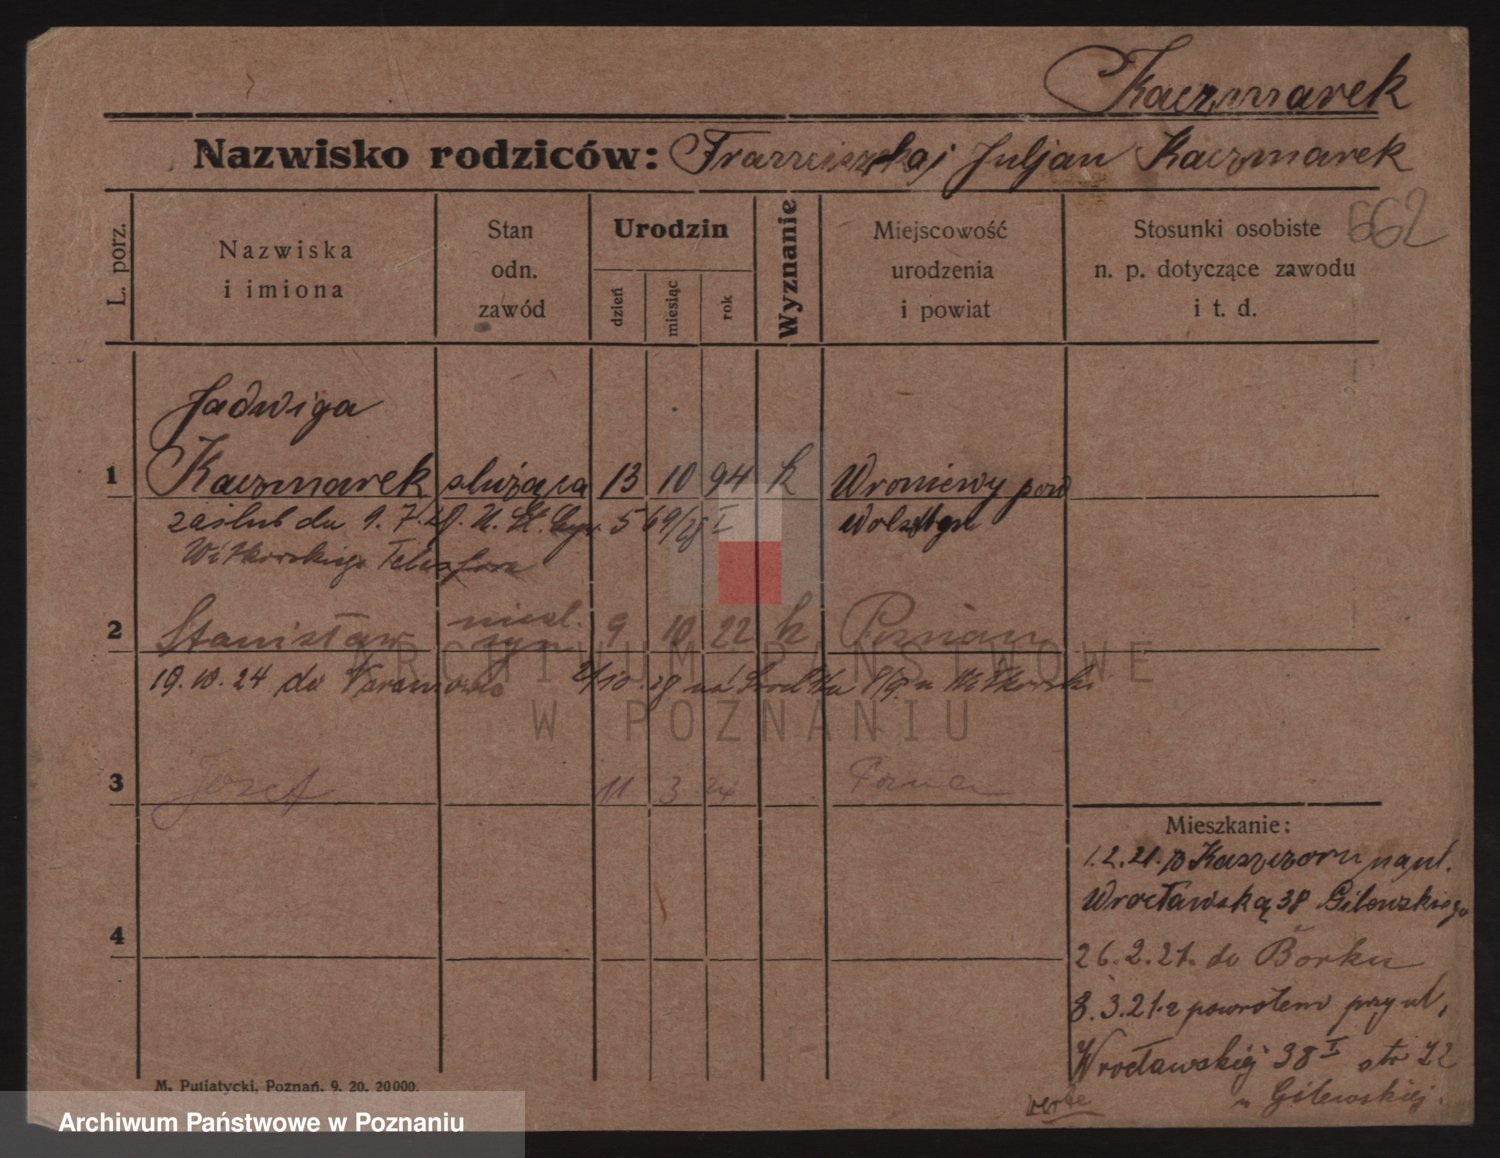 Kaczmarek
Nazwisko rodziców: Franciszka i Juljan Kaczmarek
662
L. porz.
Nazwiska
i imiona
Stan
odn.
zawód
Urodzin
dzień
miesiąc
rok
Wyznanie
Miejscowość
urodzenia
i powiat
Stosunki osobiste
n. p. dotyczące zawodu
i t. d.
Jadwiga
1 Kaczmarek służąca 13 10 94 k Wroniawy pow
zaślub dn 9.7.28. U. St. 569/28 I Wolsztyn
Witkowskiego Telesfora
2 Stanisław nieśl. syn 9 10 22 k Poznań
19.10.24 do 2/10.28 u Witkowski
3 Józef 11 3 24 Poznań
4
Mieszkanie:
1.2.21. z Kaszczoru na ul.
Wrocławską 38 Gilewskiego
26.2.21. do Borku
8.3.21. z powrotem przy ul.
Wrocławskiej 38 I str 22
u Gilewskiej.
verte
M. Putiatycki, Poznań. 9. 20. 20000.
ARCHIWUM PAŃSTWOWE
W POZNANIU
Archiwum Państwowe w Poznaniu